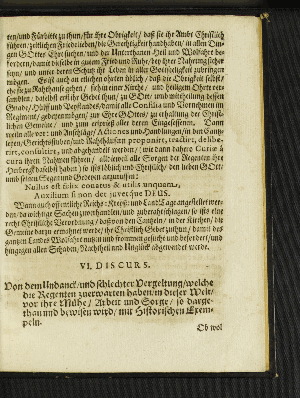 ren/und Fürbitte zu thun/für ihre Obrigkeit/ daß sie ihr Ambt Christlich
führen/ zeitlichen Friede lieben/ die Gerechtigkeit handhaben/ in allen Din-
gen GOttes Ehr suchen/ und der Unterthanen Heil und Wolfahrt be-
fördern/ damit dieselbe in gutem Fried und Ruhe/ bey ihrer Nahrung sicher
seyn/ und unter deren Schutz ihr Leben in aller Gottseligkeit zubringen
mögen. Es ist auch an etlichen öhrten löblich/ daß die Obrigkeit selbst/
ehe sie zu Rahthause gehen/ sich in einer Kirche/ und heiligem Ohrte ver-
samblen/ daselbst erst ihr Gebet thun/ zu GOtt/ umb mittheilung seiner
Gnade/ Hülff und Beystandes/ damit alle Consilia und Vornehmen im
Regiment/ gedeyen mögen/ zu Ihre GOttes/ zu erhaltung der Christli-
chen Gemeine/ und zum erspriesz aller deren Eingesessenen. Dann
weiln alle vor: und Anschläge/ Actiones und Handlungen/ in den Cantz-
leyen/ Gerichtsstuben/ und Rahthäusern proponirt, tractirt, delibe-
rirt, consultirt, und abgehandelt werden/ (wie dann dahero Curiæ à
cura ihren Nahmen führen/ alldieweil alle Sorgen der Regenten ihre
Herberge daselbst haben) so ists löblich und Christlich/ den lieben GOtt/
umb seinen Segen und Gedeyen anzuruffen:
Nullus est felix conatus & utilis unquam,
Auxilium si non det juvetque DEUS.
Wann auch offentliche Reichs: Kreyß: und Land Tage angestellet wer-
den/ da wichtige Sachen zuverhandlen/ und zuberahtschlagen/ so ists eine
recht Christliche Verordnung/ daß von den Cantzeln/ in der Kirchen/ die
Gemeine darzu ermahnet werde/ ihr Christlich Gebet zuthun/ damit des
gantzen Landes Wolfahrt nutzen und frommen gesucht und befordert/ und
hingegen aller Schaden/ Nachtheil und Unglück abgewendet werde.
VI. DISCURS.
Von dem Undanck/ und schlechter Vergeltung/ welche
die Regenten zuerwarten haben/ in dieser Welt/
vor ihre Mühe/ Arbeit und Sorge/ so darge-
than und bewisen wird/ mit Historischen Exem-
peln.
Ob wol